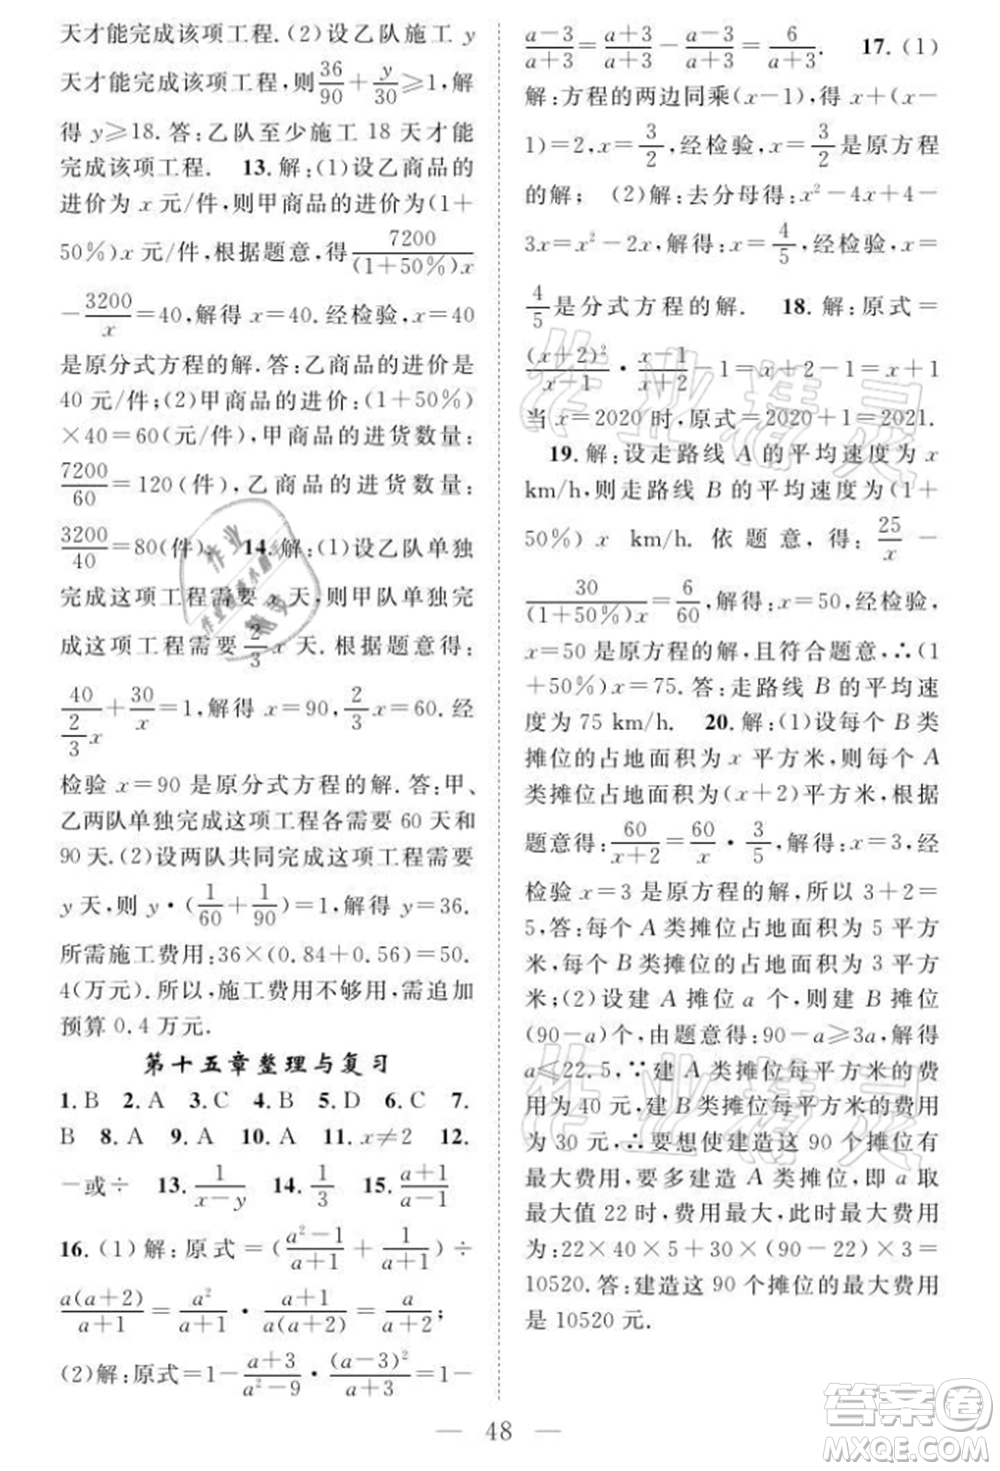 天才能完成该项工程.(2)设乙队施工 y
天才能完成该项工程,则36/90+y/30≥1,解
得 y≥18.答:乙队至少施工 18 天才能
完成该项工程. 13.解:(1)设乙商品的
进价为 x 元/件,则甲商品的进价为(1+
50%)x 元/件,根据题意,得7200/(1+50%)x
-3200/x=40,解得 x=40.经检验,x=40
是原分式方程的解.答:乙商品的进价是
40 元/件;(2)甲商品的进价:(1+50%)
×40=60(元/件),甲商品的进货数量:
7200/60=120(件),乙商品的进货数量:
3200/40=80(件). 14.解:(1)设乙队单独
完成这项工程需要 x 天,则甲队单独完
成这项工程需要2/3x 天.根据题意得:
40/(2/3x)+30/x=1,解得 x=90,2/3x=60.经
检验 x=90 是原分式方程的解.答:甲、
乙两队单独完成这项工程各需要 60 天和
90 天.(2)设两队共同完成这项工程需要
y 天,则 y·(1/60+1/90)=1,解得 y=36.
所需施工费用:36×(0.84+0.56)=50.
4(万元).所以,施工费用不够用,需追加
预算 0.4 万元.
第十五章整理与复习
1.B 2.A 3.C 4.B 5.D 6.C 7.
B 8.A 9.A 10.A 11.x≠2 12.
-或÷ 13.1/(x-y) 14.1/3 15.(a+1)/(a-1)
16.(1)解:原式=((a²-1)/(a+1)+1/(a+1))÷
a(a+2)/(a+1)=a²/(a+1)·(a+1)/a(a+2)=a/(a+2);
(2)解:原式=1-(a+3)/(a²-9)·(a-3)²/(a+3)=1-
(a-3)/(a+3)=(a+3)/(a+3)-(a-3)/(a+3)=6/(a+3). 17.(1)
解:方程的两边同乘(x-1),得 x+(x-
1)=2,x=3/2,经检验,x=3/2是原方程
的解; (2)解:去分母得:x²-4x+4-
3x=x²-2x,解得:x=4/5,经检验,x=
4/5是分式方程的解. 18.解:原式=
(x+2)²/(x-1)·(x-1)/(x+2)-1=x+2-1=x+1
当 x=2020 时,原式=2020+1=2021.
19.解:设走路线 A 的平均速度为 x
km/h,则走路线 B 的平均速度为(1+
50%) x km/h. 依题意,得:25/x-
30/(1+50%)x=6/60,解得:x=50,经检验,
x=50 是原方程的解,且符合题意,∴(1
+50%)x=75.答:走路线 B 的平均速
度为 75 km/h. 20.解:(1)设每个 B 类
摊位的占地面积为 x 平方米,则每个 A
类摊位占地面积为(x+2)平方米,根据
题意得:60/(x+2)=60/x·3/5,解得:x=3,经
检验 x=3 是原方程的解,所以 3+2=
5,答:每个 A 类摊位占地面积为 5 平方
米,每个 B 类摊位的占地面积为 3 平方
米;(2)设建 A 摊位 a 个,则建 B 摊位
(90-a)个,由题意得:90-a≥3a,解得
a≤22.5,∵建 A 类摊位每平方米的费
用为 40 元,建 B 类摊位每平方米的费用
为 30 元,∴要想使建造这 90 个摊位有
最大费用,要多建造 A 类摊位,即 a 取
最大值 22 时,费用最大,此时最大费用
为:22×40×5+30×(90-22)×3=
10520.答:建造这 90 个摊位的最大费用
是 10520 元.
48
作业精灵
作业精灵
作业
答案卷
MXQE.COM